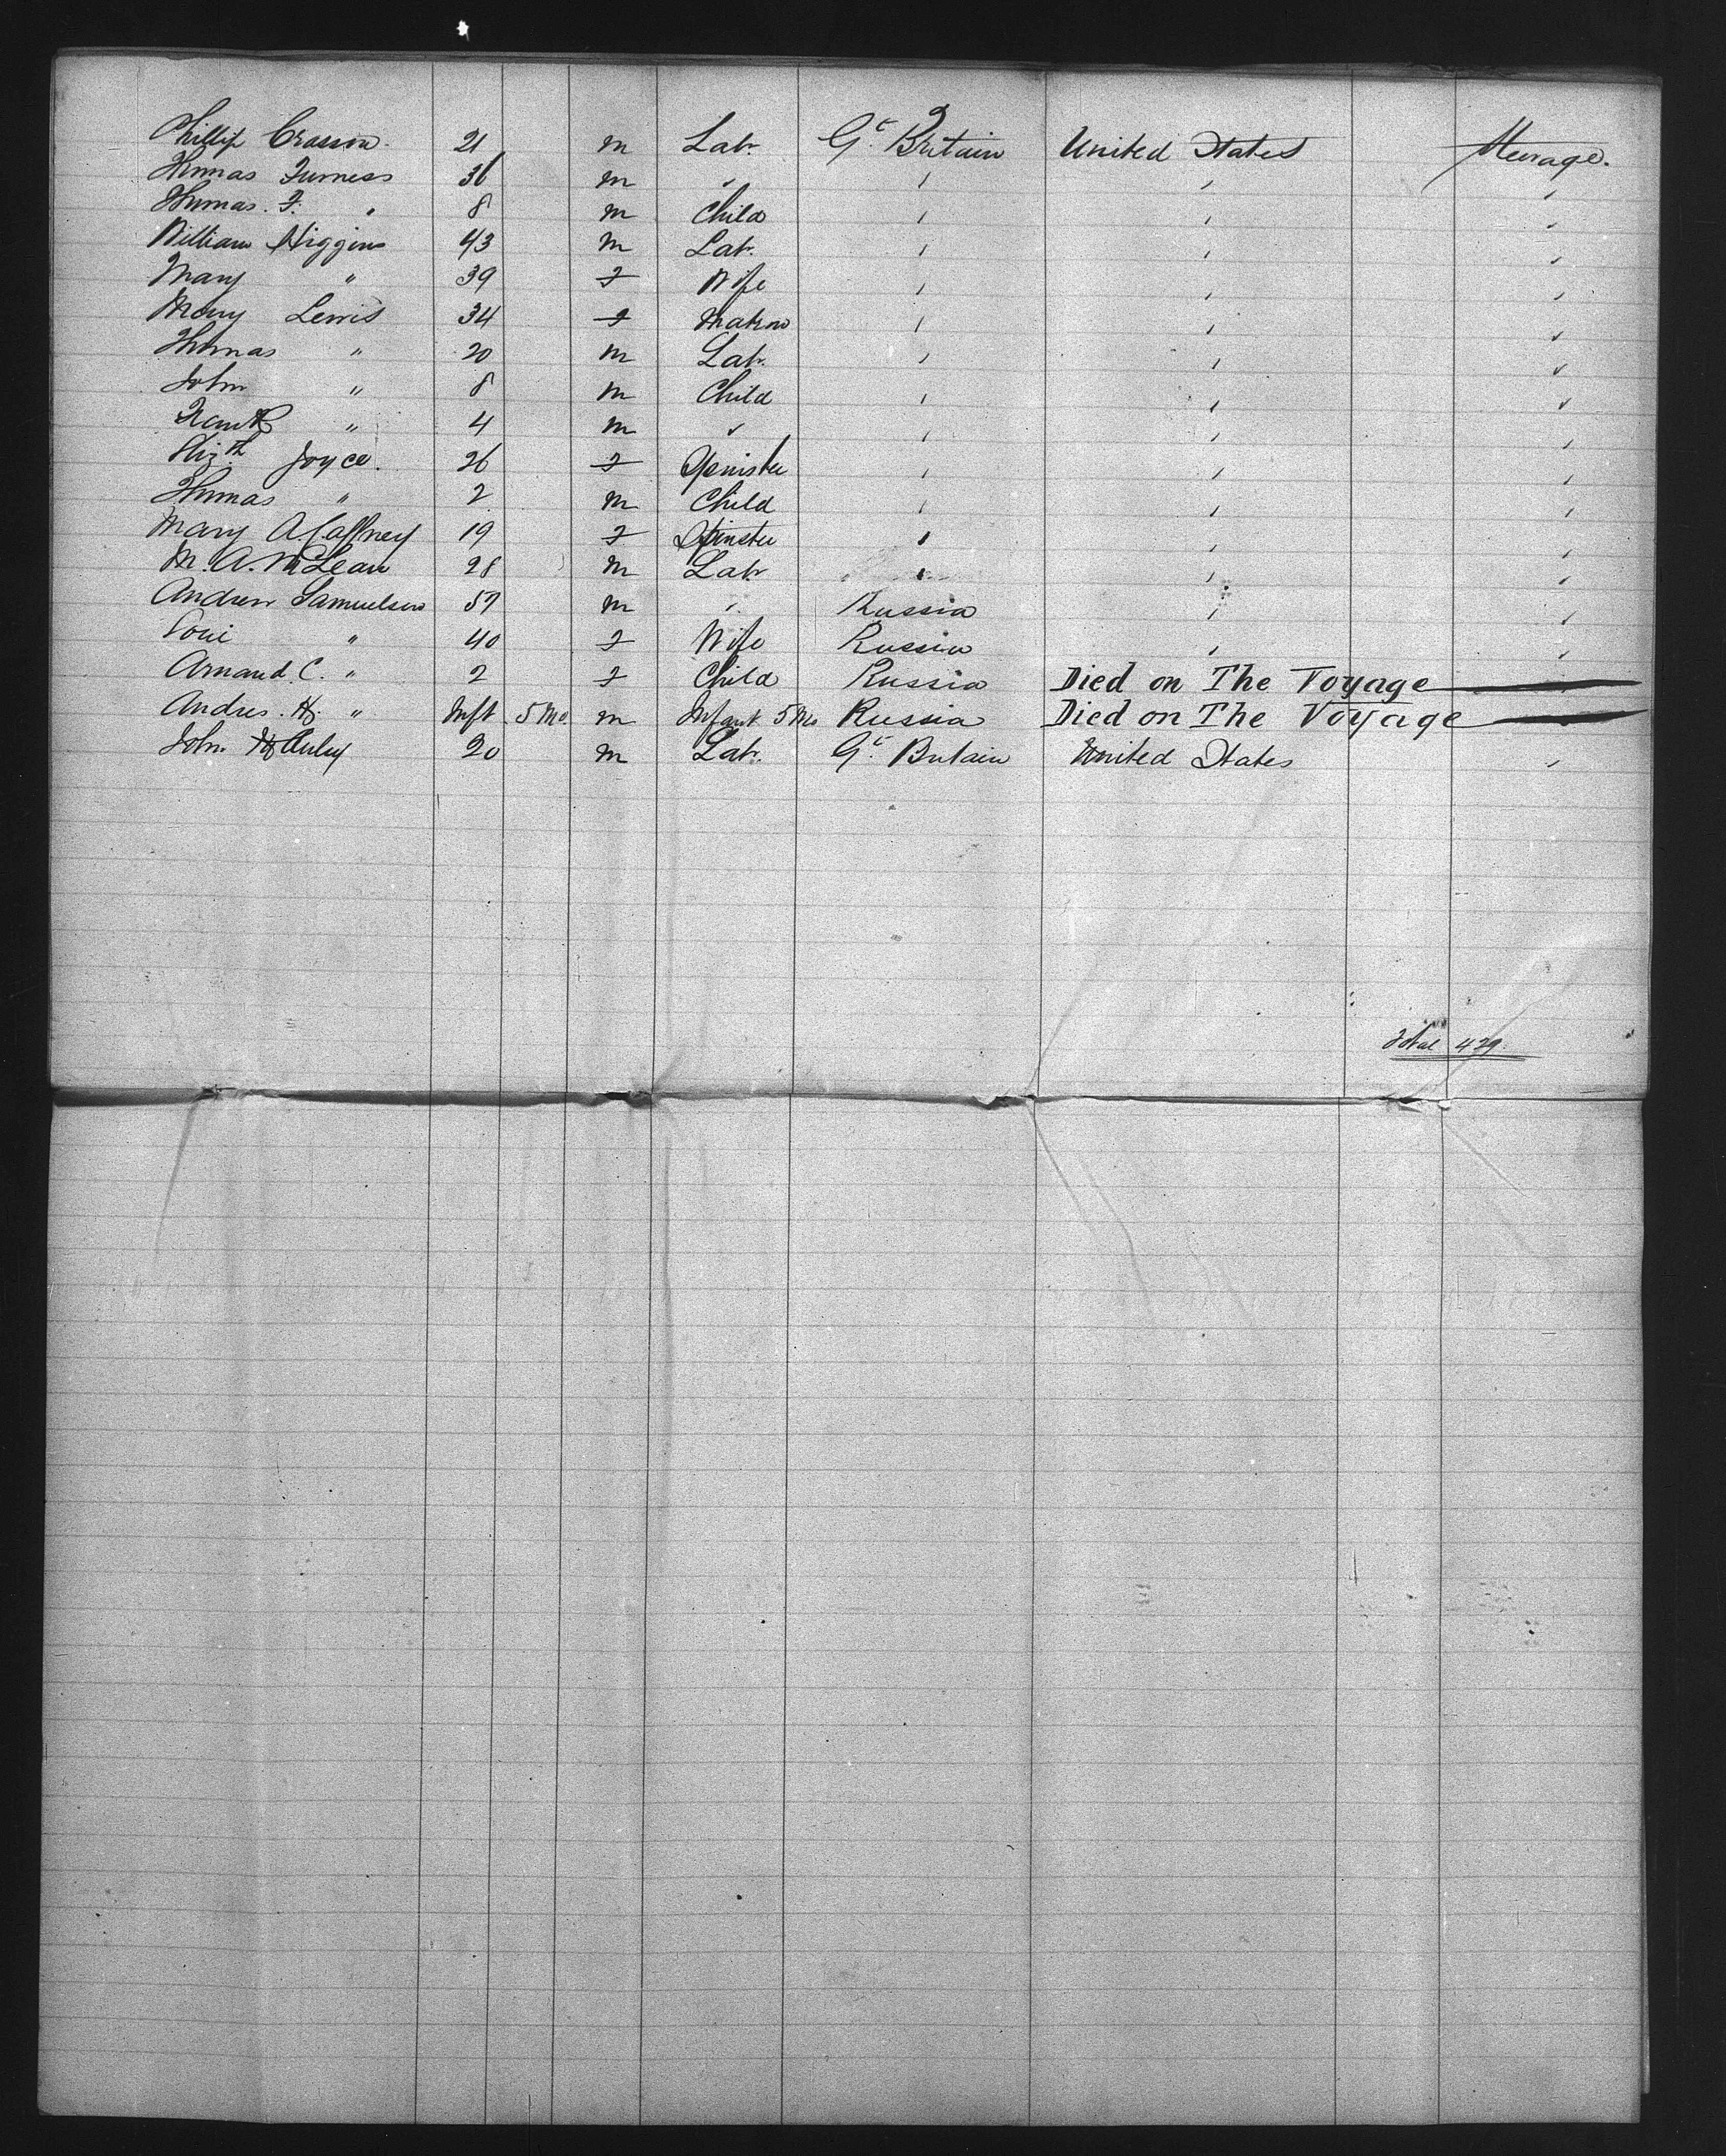 Phillip Crasson. 21 m Lab. Gt. Britain United States Steerage.
Thomas Furness 36 m " " " "
Thomas. F. " 8 m Child " " "
William Higgins 43 m Lab. " " "
Mary " 39 f Wife " " "
Mary Lewis 34 f Matron " " "
Thomas " 20 m Lab. " " "
John " 8 m Child " " "
Frank " 4 m " " " "
Elizth Joyce. 26 f Spinster " " "
Thomas " 2 m Child " " "
Mary A Caffney 19 f Spinster " " "
M. A. McLean 28 m Lab " " "
Andrew Samuelson 57 m " Russia " "
40 f Wife Russia " "
Amand. C. " 2 f Child Russia Died on The Voyage
Andres. H. " Inft 5 Mo. m Infant 5 Mo Russia Died on The Voyage
John 20 m Lab. Gt. Britain United States "
Total 429.